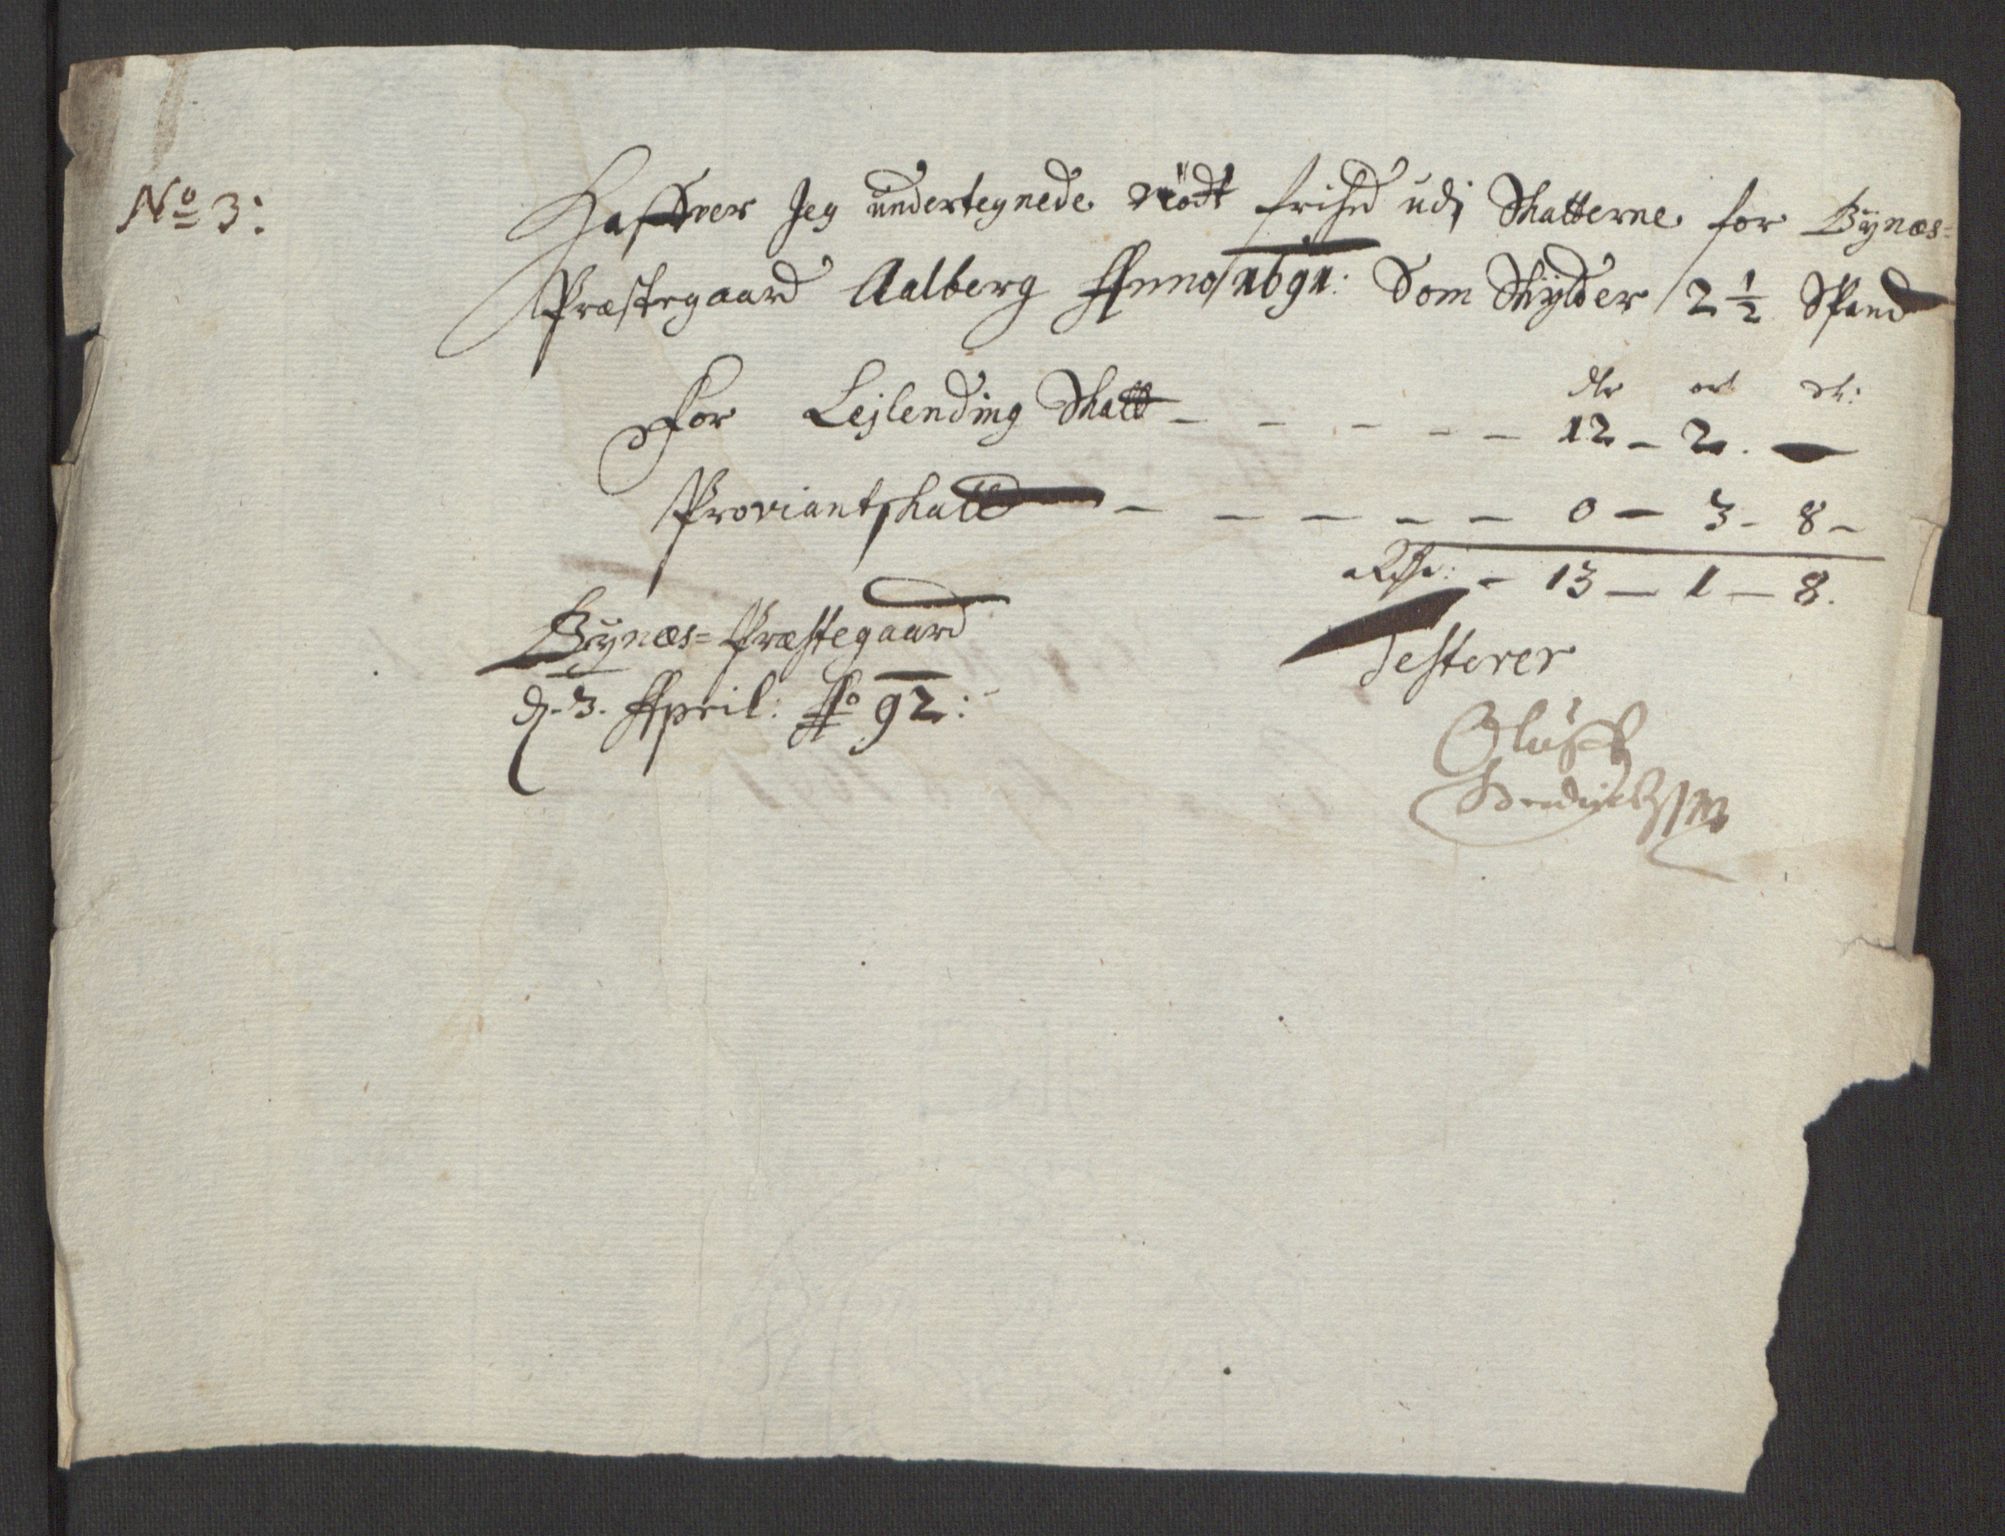 No 3:
Haffver Jeg undertegnede nÿdt frihed udj Skatterne for Bÿnæs=
Præstegaard Aalberg Anno 1691: Som Skÿlder 2 1/2 Spand
dlr ort sk:
For Lejlending Skatt - - - - - 12 - 2. -
Proviantskatt - - - - - 0 - 3 - 8 -
Rixdr: - 13 - 1 - 8.
Bÿnæs= Præstegaard
d. 3. April: Ao 92:
Testerer
Oluff
Bendichssøn